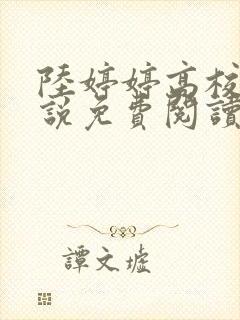 陸婷婷高校
說免費閱讀
譚文墟